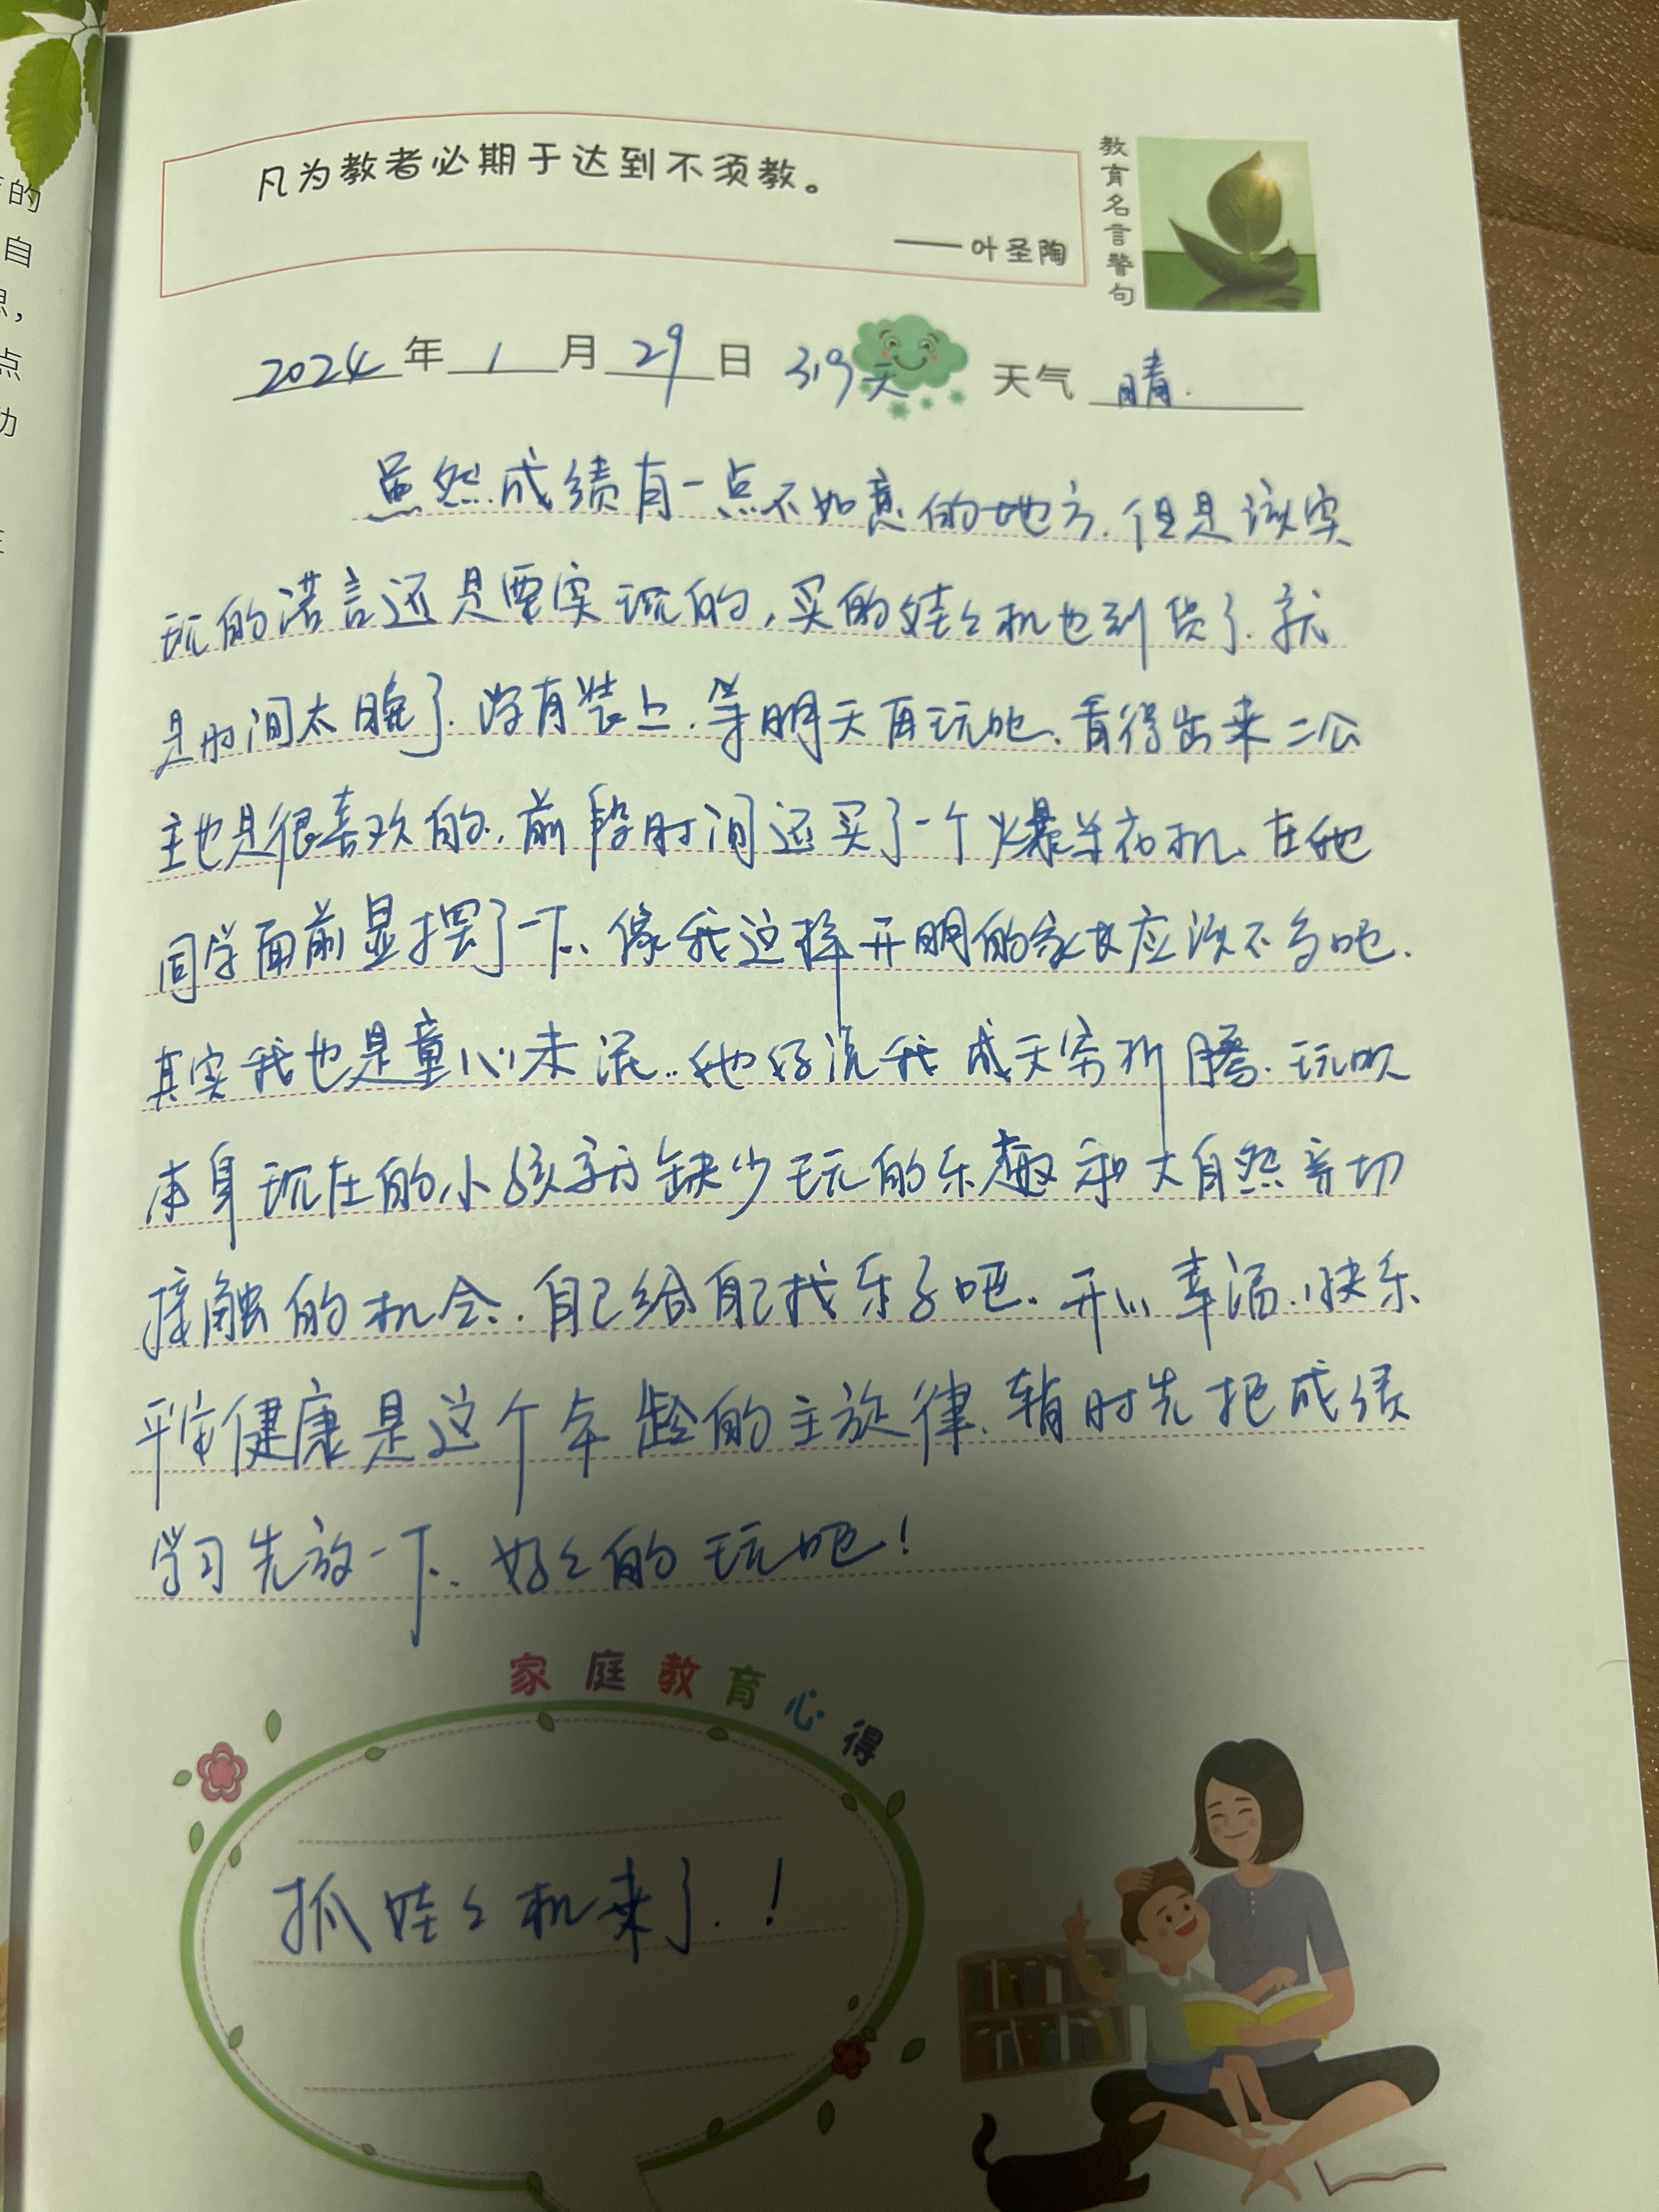 的
自
点
功
凡为教者必期于达到不须教。
——叶圣陶
教育名言警句
2024年1月29日 319天 天气 晴.
虽然成绩有一点不如意的地方.但是该实
现的诺言还是要实现的,买的娃々机也到货了.就
是时间太晚了.没有装上.等明天再玩吧.看得出来二公
主也是很喜欢的.前段时间还买了一个爆米花机.在她
同学面前显摆了一下.像我这样开明的家长应该不多吧.
其实我也是童心未泯..她妈说我成天穷折腾.玩呗
本身现在的小孩就缺少玩的乐趣和大自然亲切
接触的机会.自己给自己找乐子吧.开心幸福.快乐
平安健康是这个年龄的主旋律.暂时先把成绩
学习先放一下.好々的玩吧!
家庭教育心得
抓娃々机来了.!